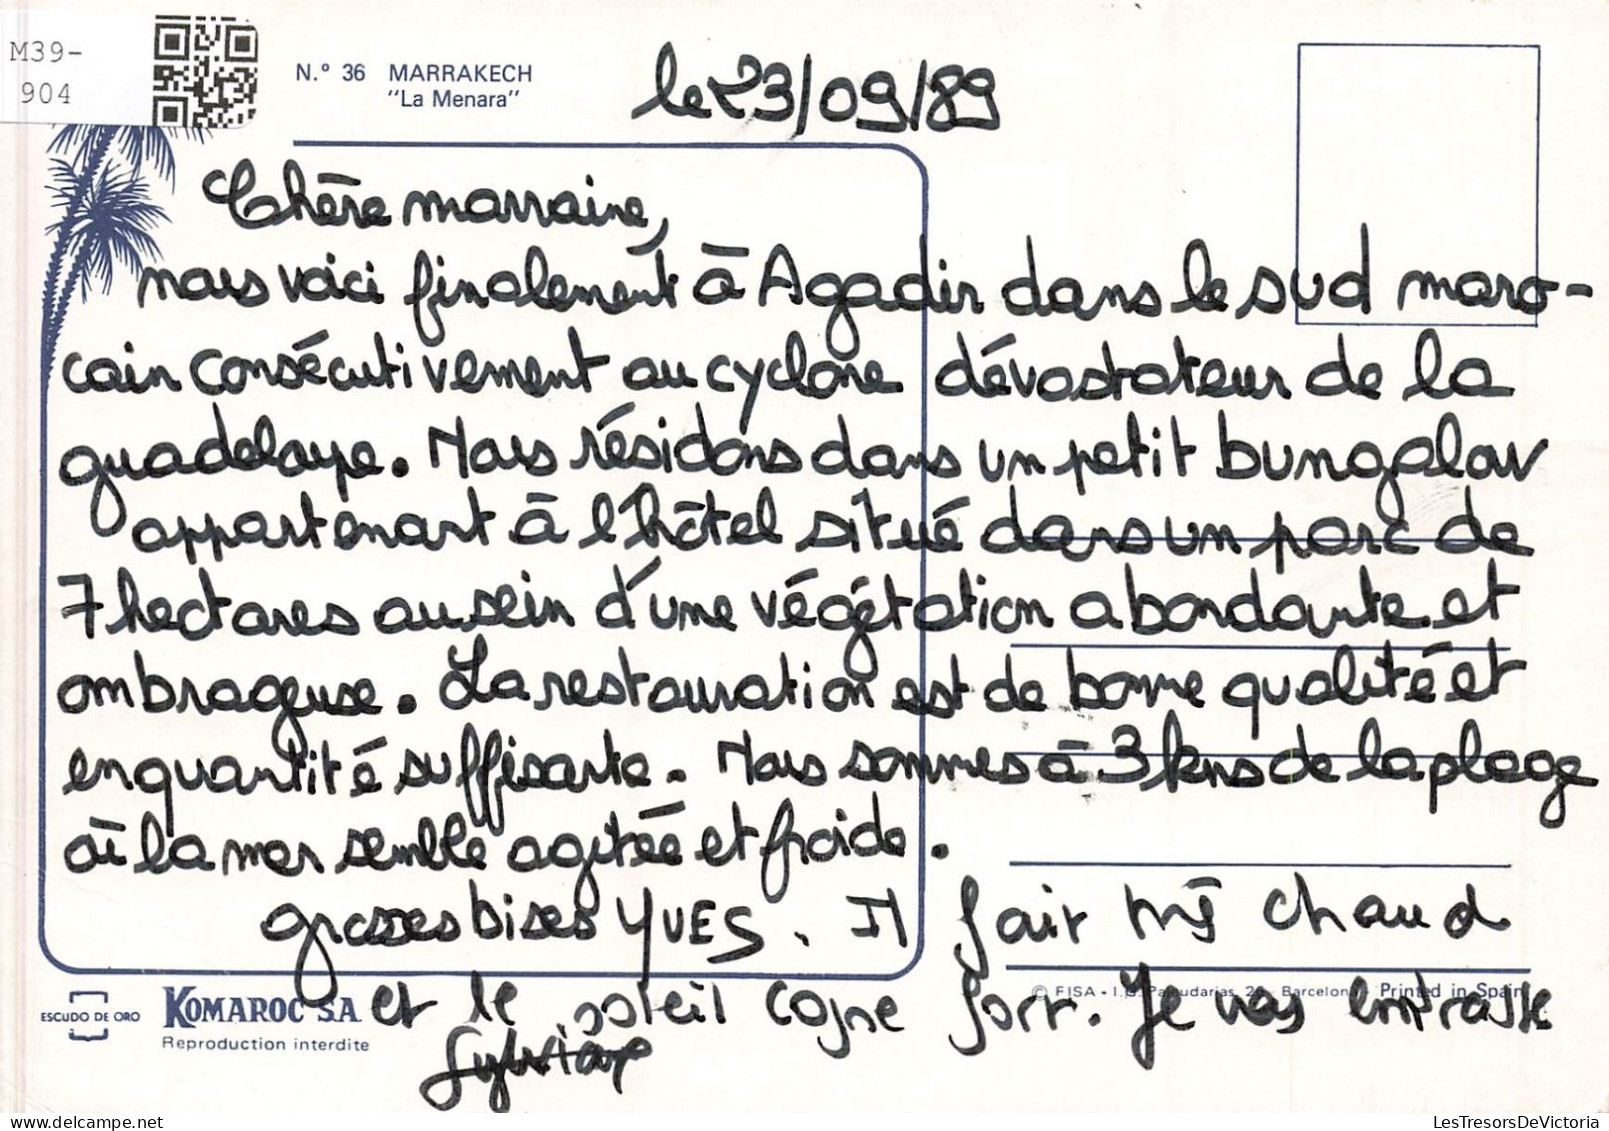 M39-
904
N.º 36 MARRAKECH
"La Menara"
le 23/09/89
Chère marraine,
nous voici finalement à Agadir dans le sud maro-
cain consécutivement au cyclone dévastateur de la
guadeloupe. Nous résidons dans un petit bungalow
appartenant à l'hôtel situé dans un parc de
7 hectares au sein d'une végétation abondante et
ombrageuse. La restauration est de bonne qualité et
en quantité suffisante. Nous sommes à 3 kms de la plage
où la mer semble agitée et froide.
grosses bises YVES. Il fait très chaud
et le soleil cogne fort. Je vous embrasse
ESCUDO DE ORO
KOMAROC S.A.
Reproduction interdite
© FISA - I.G. Barcelona - Printed in Spain
LesTresorsDeVictoria.com